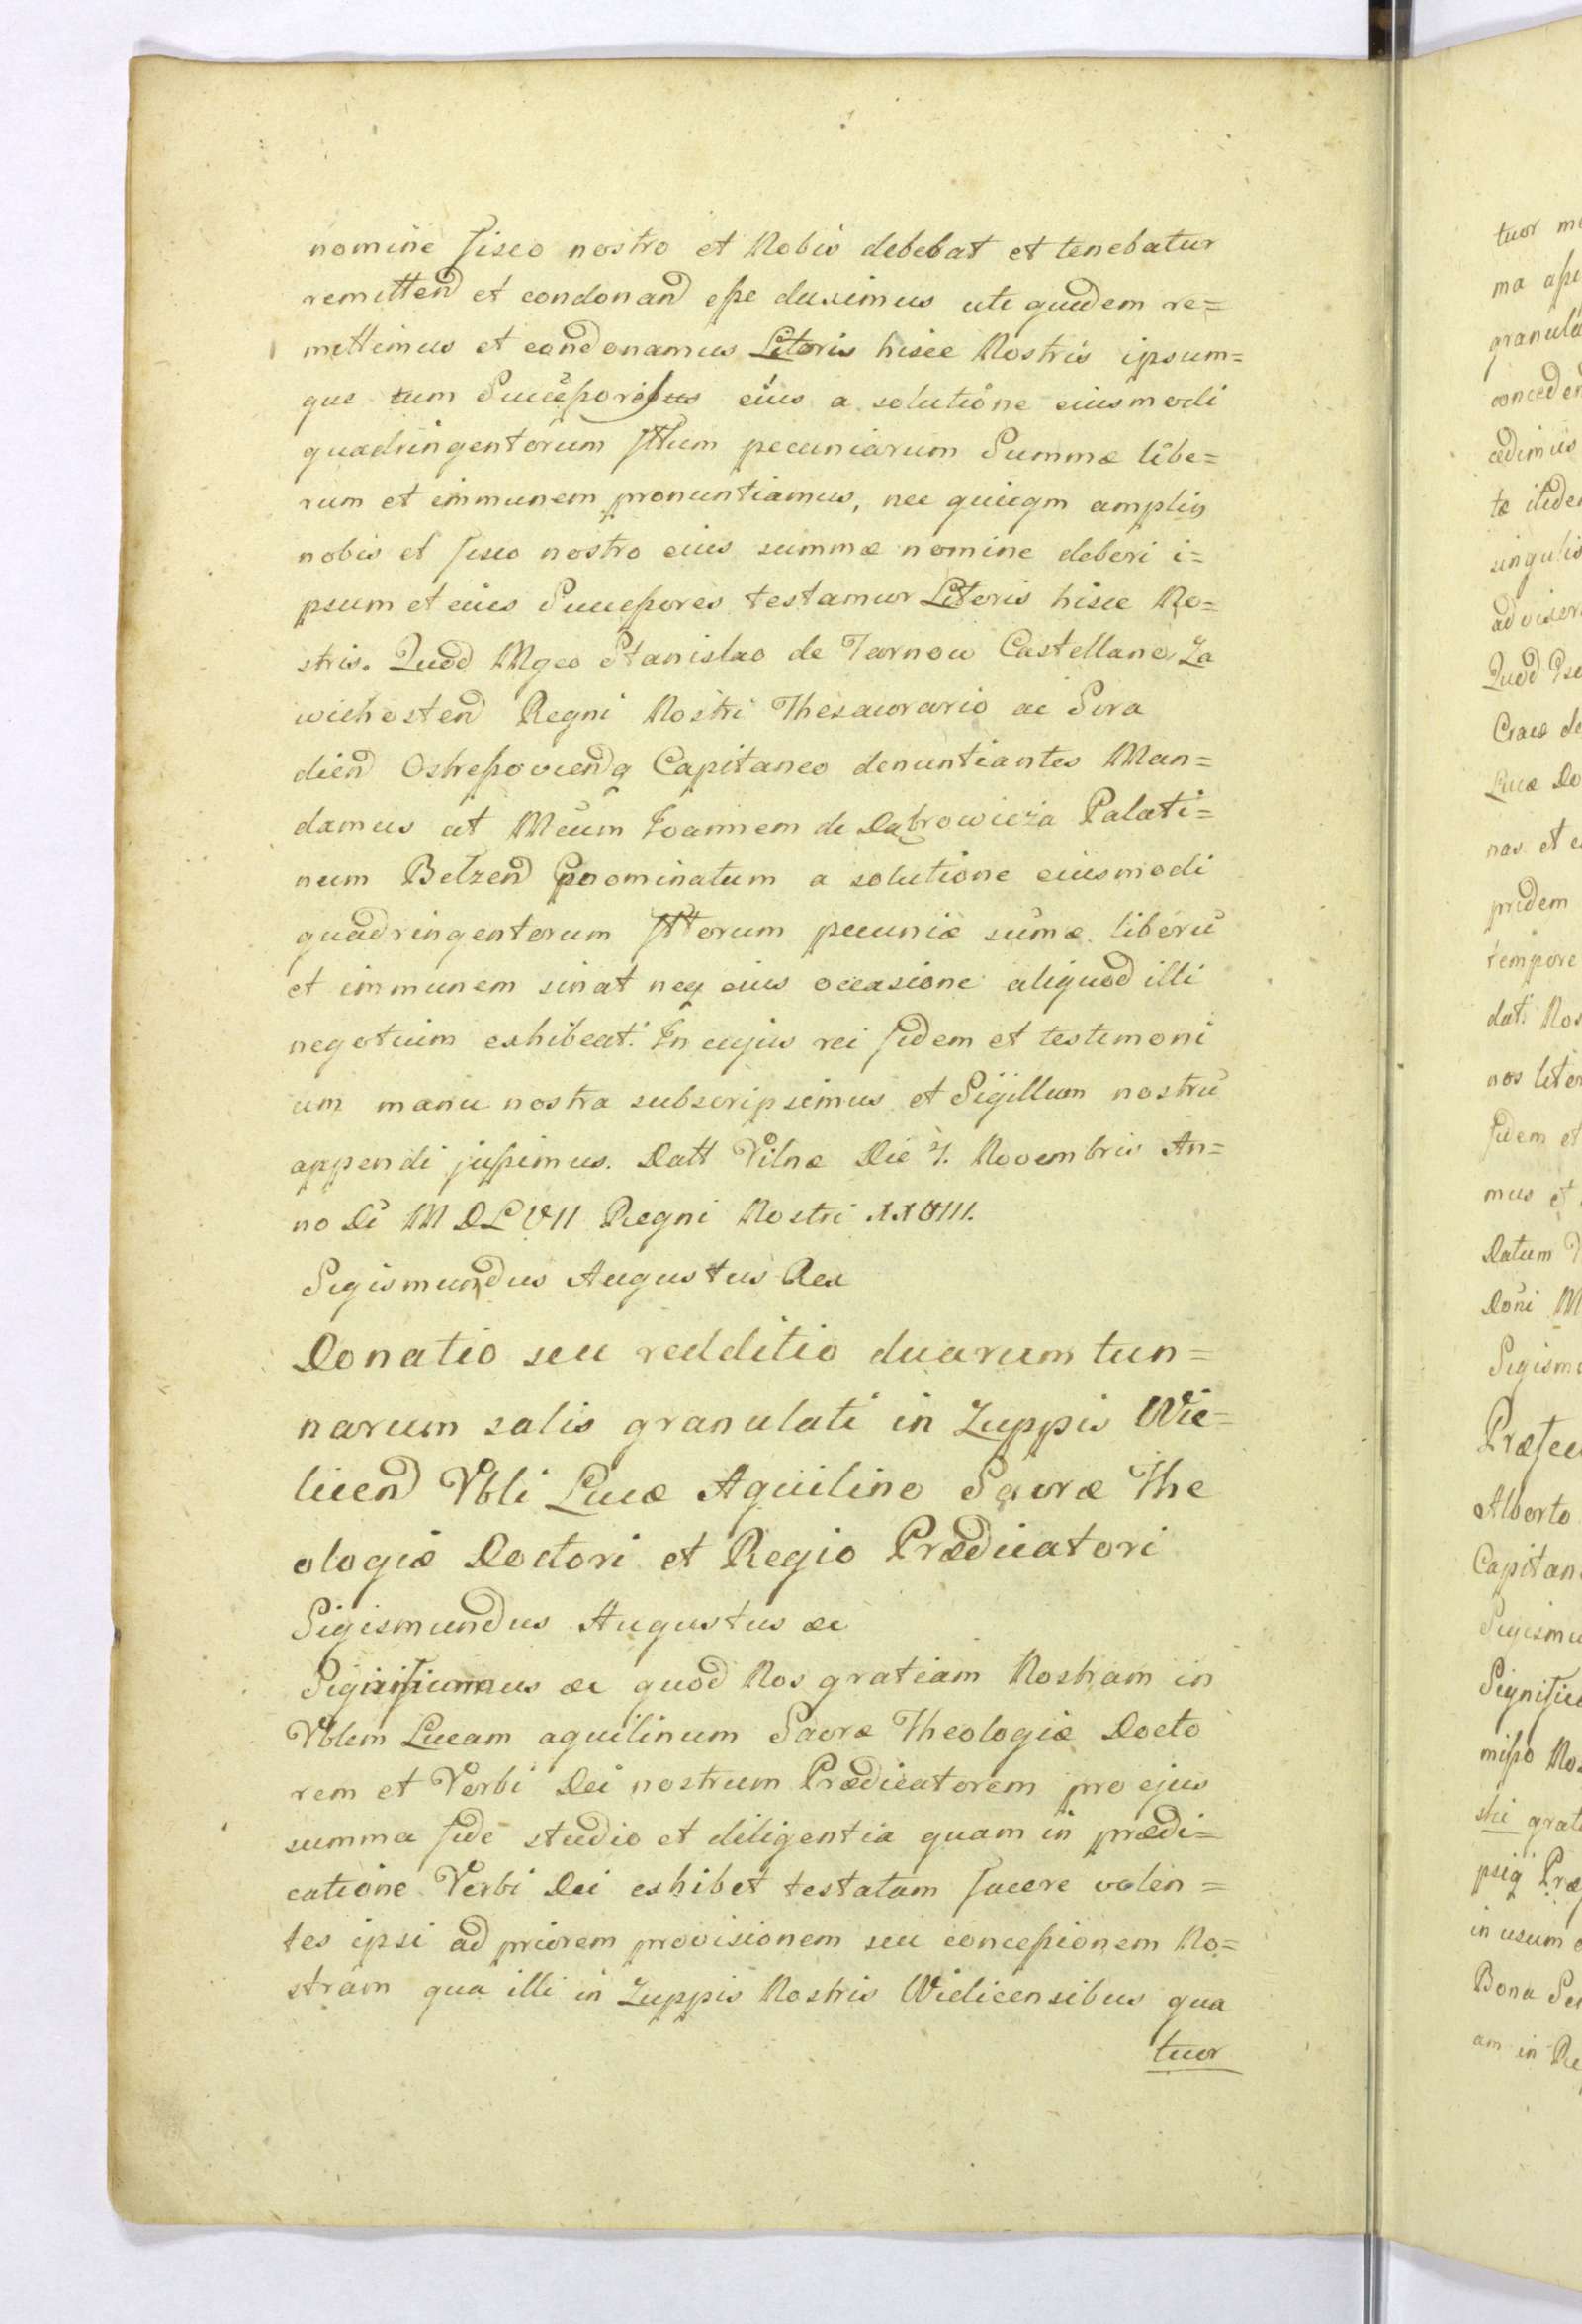 nomine fisco nostro et Nobis debebat et tenebatur
remittend et condonand eße duximus uti quidem re=
mittimus et condonamus Literis hisce Nostris ipsum=
que cum Succeßoribus eius a solutione eiusmodi
quadringentorum fttum pecuniarum Summæ libe=
rum et immunem pronuntiamus, nec quicqm amplis
nobis et fisco nostro eius summæ nomine deberi i=
psum et eius Succeßores testamur Literis hisce No=
stris. Quod Mgco Stanislao de Tarnow Castellano Za
wichosten Regni Nostri Thesaurario ac Sira
dien Ostreßovienq Capitaneo denuntiantes Man=
damus ut Mcum Joannem de Dąbrowicża Palati=
num Belzen pnominatum a solutione eiusmodi
quadringentorum fttorum pecuniæ sumæ liberū
et immunem sinat neq eius occasione aliquod illi
negotium exhibeat. In cujus rei fidem et testimoni
um manu nostra subscripsimus et Sigillum nostrū
appendi jußimus. Datt Vilnæ Die 7. Novembris An=
no Di MDLVII Regni Nostri XXVIII.
Sigismundus Augustus Rex
Donatio seu redditio duarum tun=
narum salis granulati in Zuppis Wie=
licen Vbli Lucæ Aquilino Sacræ The
ologiæ Doctori et Regio Prædicatori
Sigismundus Augustus &c
Significamus &c quod Nos gratiam Nostram in
Vblem Lucam aquilinum Sacræ Theologiæ Docto
rem et Verbi Dei nostrum Prædicatorem pro ejus
summa fide studio et diligentia quam in prædi=
catione Verbi Dei exhibet testatam facere volen=
tes ipsi ad priorem provisionem seu conceßionem No=
stram qua illi in Zuppis Nostris Wielicensibus qua
tuor
tuor
ma
granula
conceden
cedimus
te itidem
singulis
Quod
Crac de
Lucæ Do
nas et
pridem
tempore
dat. Nos
nos liter
fidem et
mus et
Datum
Doni M
Sigism
Præfec
Alberto
Capitan
Sigismu
Signific
mißo No
stri grat
psiq Præ
in usum
Bona Se
am in Re